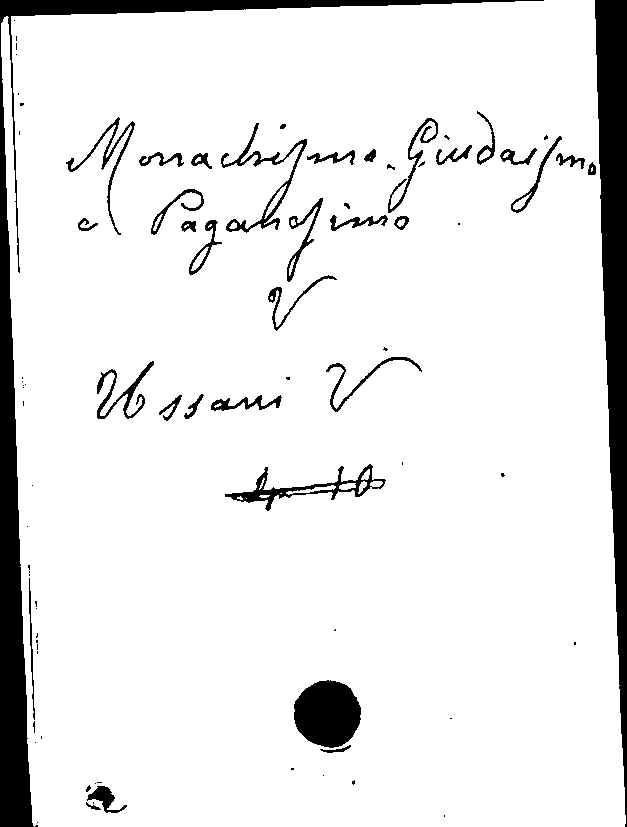 Monachismo. Giudaismo
e Paganesimo
V
Ussani V